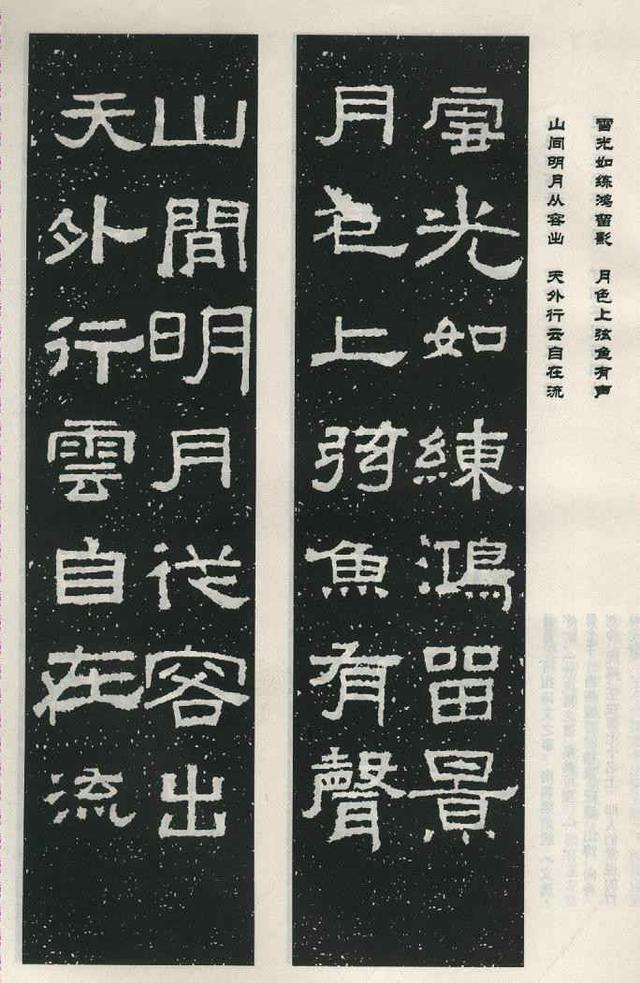 雪光如练鸿留影 月色上弦鱼有声
山间明月从容出 天外行云自在流
雪光如練鴻留景
月色上弦魚有聲
山間明月從容出
天外行雲自在流